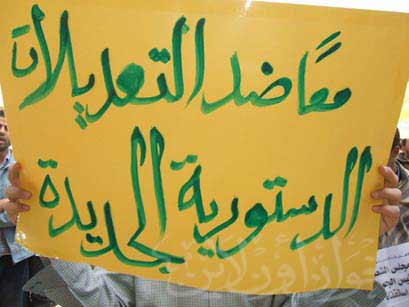 معًا ضد التعديلات
الدستورية الجديدة